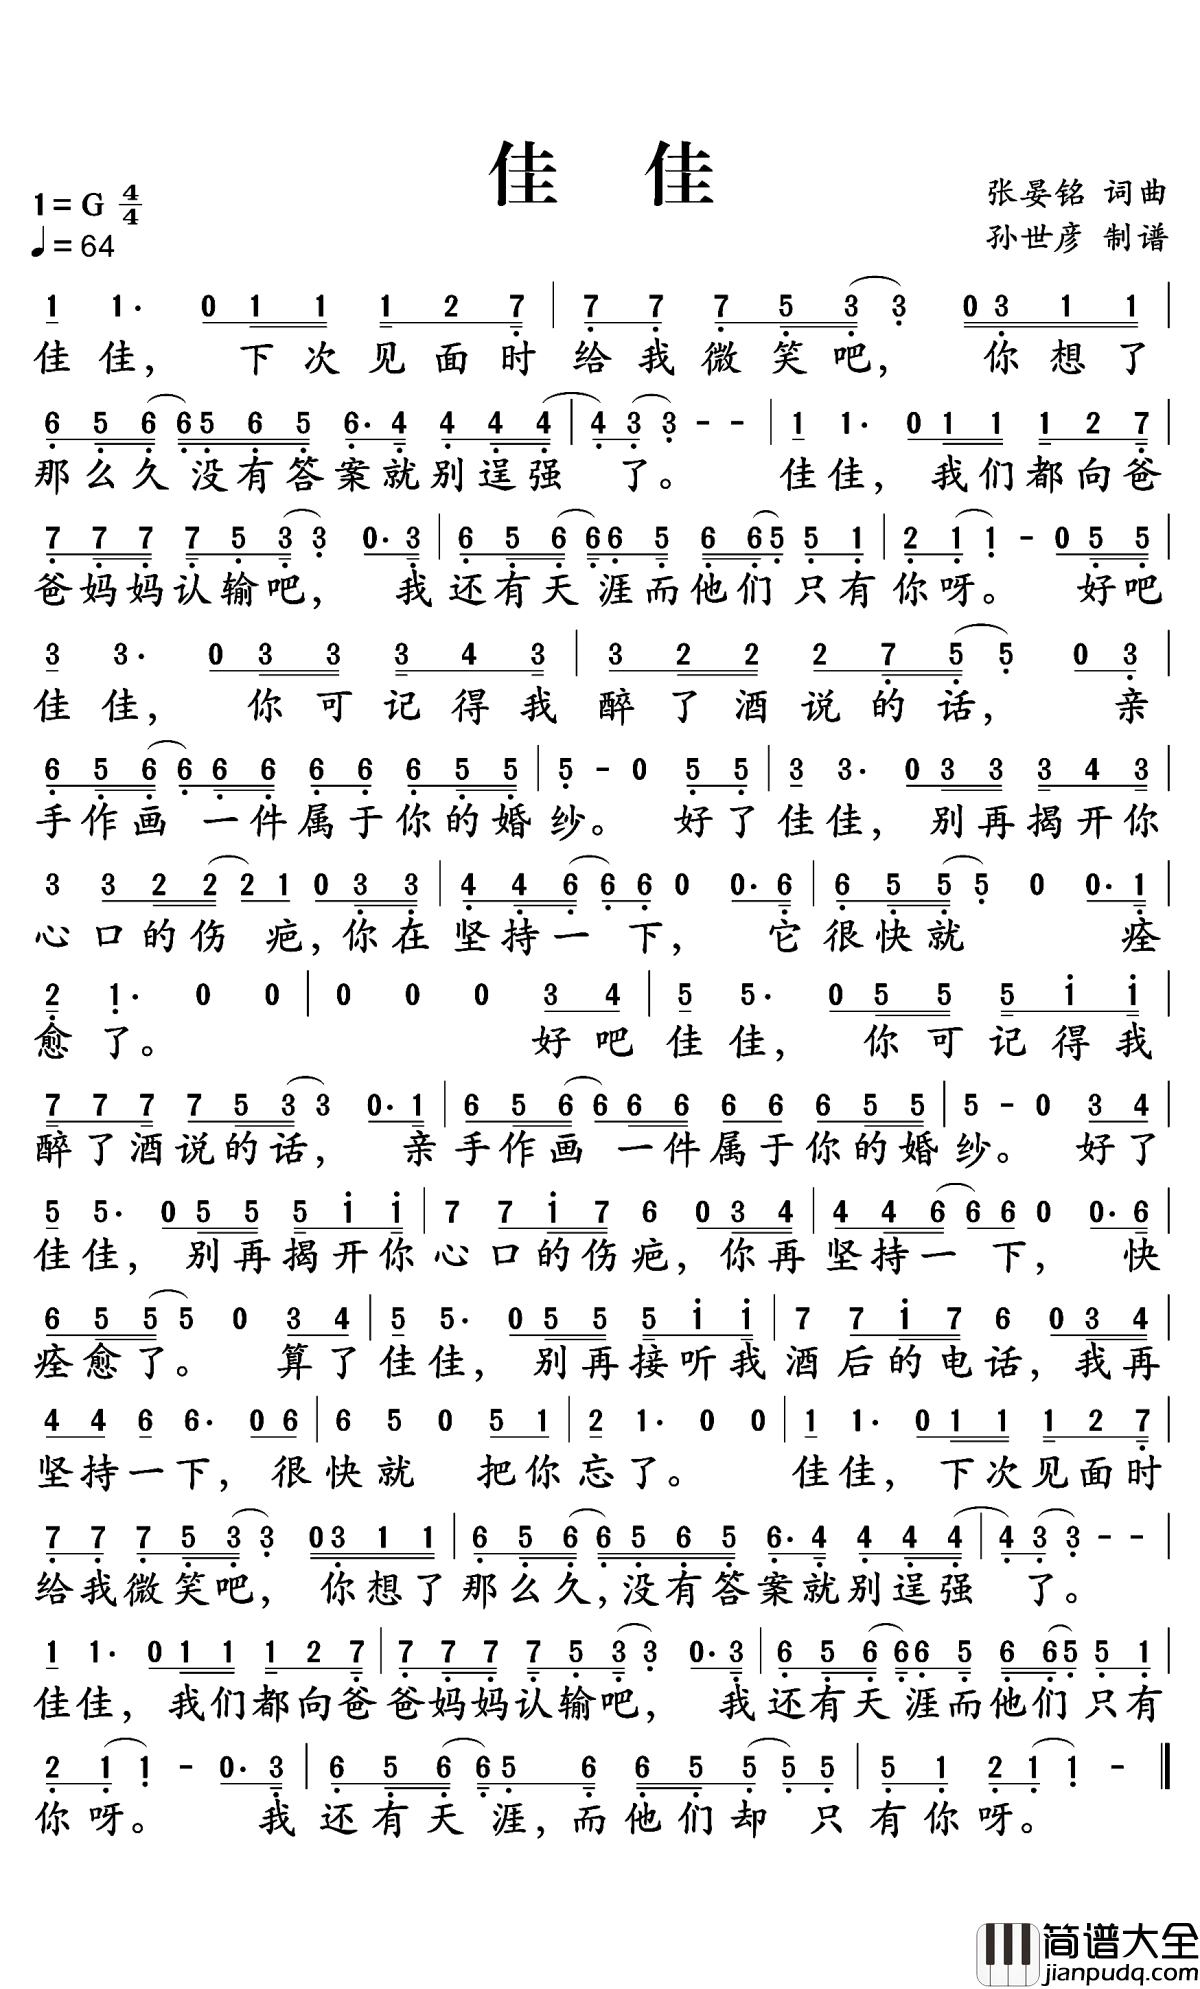 佳 佳
1=G 4/4
张晏铭 词曲
♩=64
孙世彦 制谱
1 1· 0 1 1 1 2 7 | 7 7 7 5 3 3 0 3 1 1 |
佳 佳， 下 次 见 面 时 给 我 微 笑 吧， 你 想 了
6 5 6 6 5 6 5 6· 4 4 4 4 | 4 3 3 - - | 1 1· 0 1 1 1 2 7 |
那 么 久 没 有 答 案 就 别 逞 强 了。 佳 佳， 我 们 都 向 爸
7 7 7 7 5 3 3 0· 3 | 6 5 6 6 6 5 6 6 5 5 1 | 2 1 1 - 0 5 5 |
爸 妈 妈 认 输 吧， 我 还 有 天 涯 而 他 们 只 有 你 呀。 好 吧
3 3· 0 3 3 3 4 3 | 3 2 2 2 7 5 5 0 3 |
佳 佳， 你 可 记 得 我 醉 了 酒 说 的 话， 亲
6 5 6 6 6 6 6 6 6 5 5 | 5 - 0 5 5 | 3 3· 0 3 3 3 4 3 |
手 作 画 一 件 属 于 你 的 婚 纱。 好 了 佳 佳， 别 再 揭 开 你
3 3 2 2 2 1 0 3 3 | 4 4 6 6 6 0 0· 6 | 6 5 5 5 0 0· 1 |
心 口 的 伤 疤， 你 在 坚 持 一 下， 它 很 快 就 痊
2 1· 0 0 | 0 0 0 3 4 | 5 5· 0 5 5 5 i i |
愈 了。 好 吧 佳 佳， 你 可 记 得 我
7 7 7 7 5 3 3 0· 1 | 6 5 6 6 6 6 6 6 6 5 5 | 5 - 0 3 4 |
醉 了 酒 说 的 话， 亲 手 作 画 一 件 属 于 你 的 婚 纱。 好 了
5 5· 0 5 5 5 i i | 7 7 i 7 6 0 3 4 | 4 4 6 6 6 0 0· 6 |
佳 佳， 别 再 揭 开 你 心 口 的 伤 疤， 你 再 坚 持 一 下， 快
6 5 5 5 0 3 4 | 5 5· 0 5 5 5 i i | 7 7 i 7 6 0 3 4 |
痊 愈 了。 算 了 佳 佳， 别 再 接 听 我 酒 后 的 电 话， 我 再
4 4 6 6· 0 6 | 6 5 0 5 1 | 2 1· 0 0 | 1 1· 0 1 1 1 2 7 |
坚 持 一 下， 很 快 就 把 你 忘 了。 佳 佳， 下 次 见 面 时
7 7 7 5 3 3 0 3 1 1 | 6 5 6 6 5 6 5 6· 4 4 4 4 | 4 3 3 - - |
给 我 微 笑 吧， 你 想 了 那 么 久， 没 有 答 案 就 别 逞 强 了。
1 1· 0 1 1 1 2 7 | 7 7 7 7 5 3 3 0· 3 | 6 5 6 6 6 5 6 6 5 5 1 |
佳 佳， 我 们 都 向 爸 爸 妈 妈 认 输 吧， 我 还 有 天 涯 而 他 们 只 有
2 1 1 - 0· 3 | 6 5 6 6 5 6 6 5 5 5 5 | 5 1 2 1 1 - ‖
你 呀。 我 还 有 天 涯， 而 他 们 却 只 有 你 呀。
简谱大全
jianpudq.com